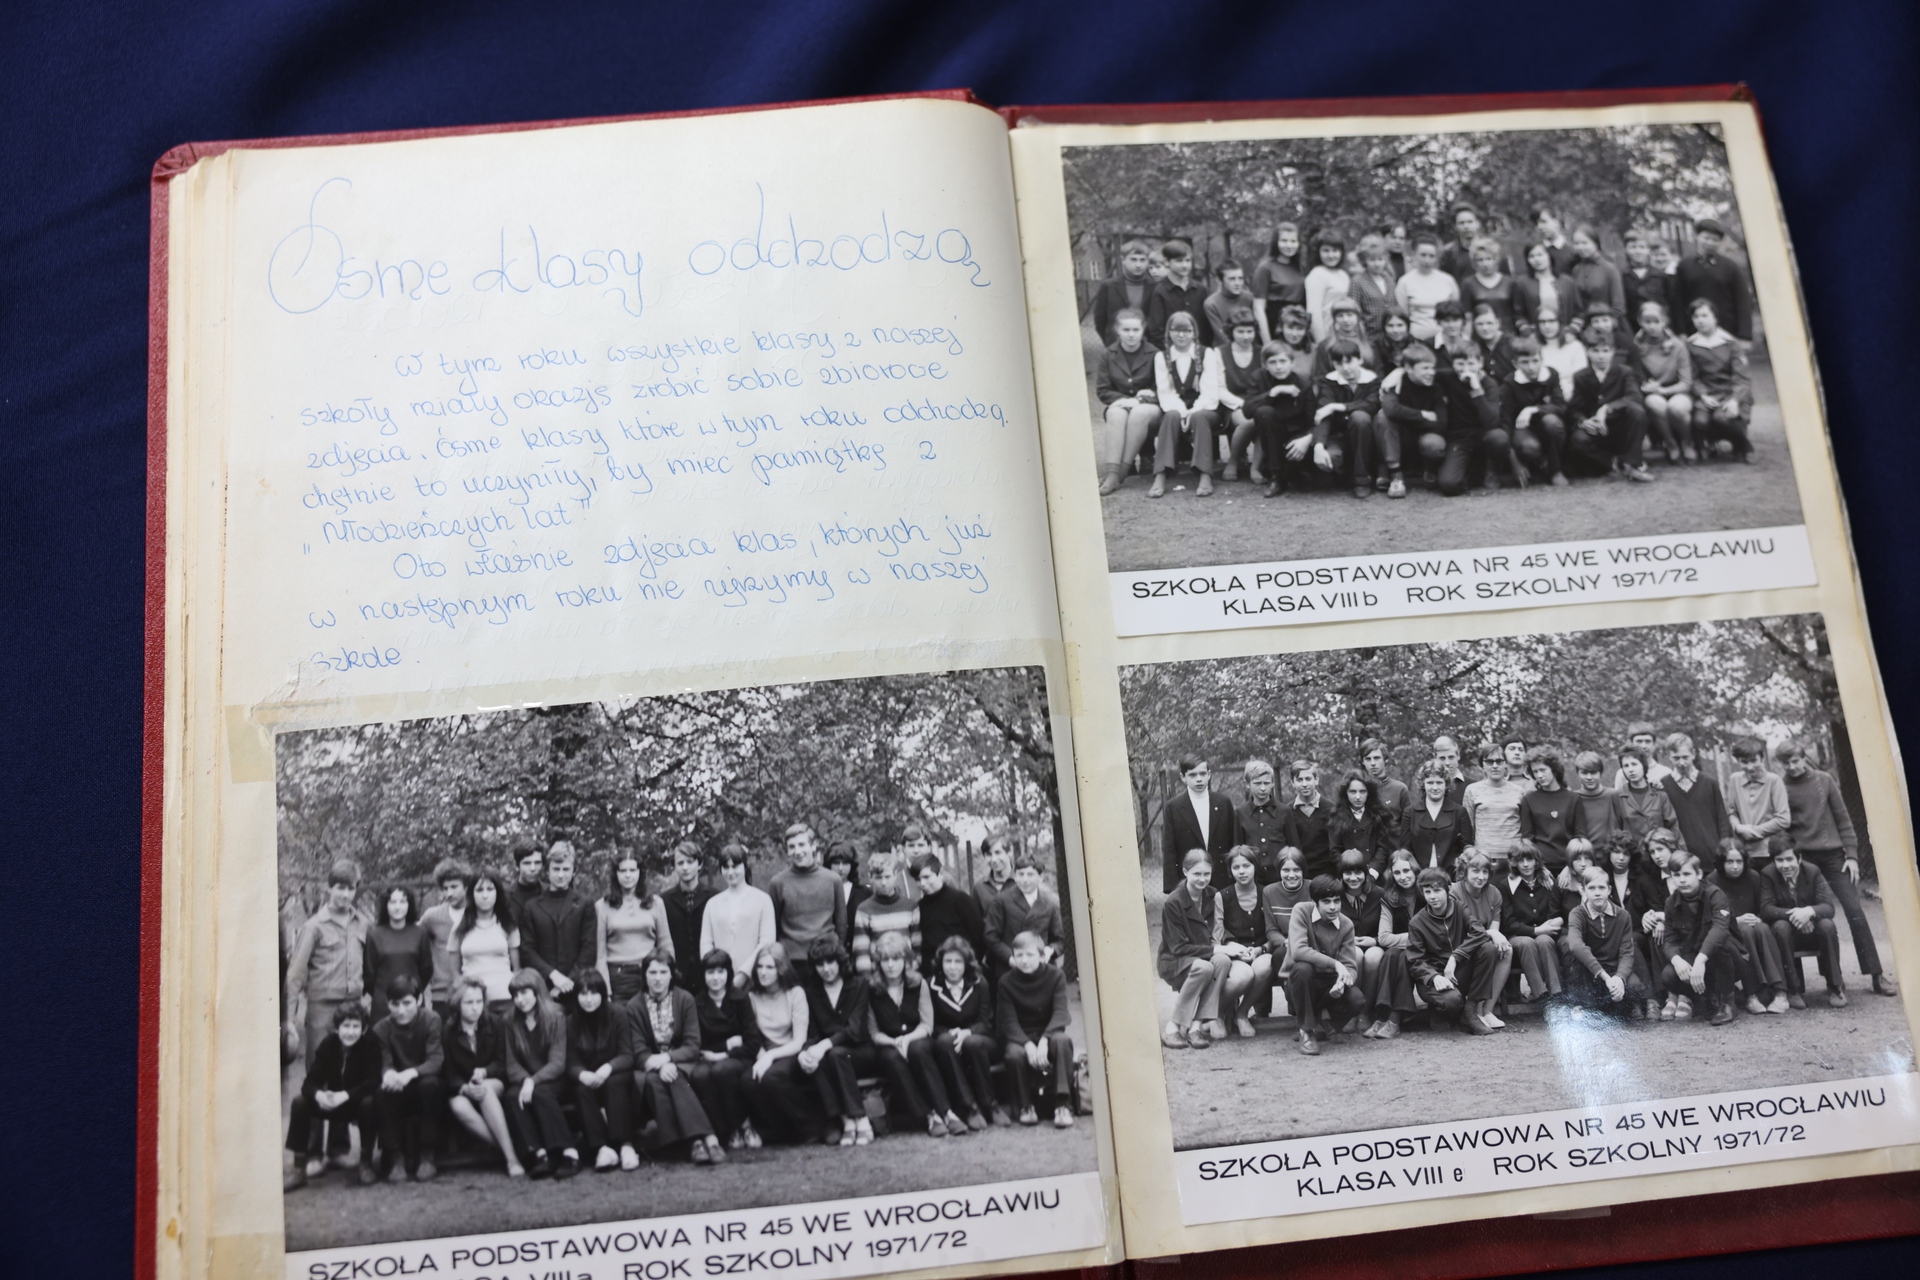 Ósme klasy odchodzą
W tym roku wszystkie klasy z naszej
szkoły miały okazję zrobić sobie zbiorowe
zdjęcia. Ósme klasy które w tym roku odchodzą
chętnie to uczyniły, by mieć pamiątkę z
„Młodzieńczych lat"
Oto właśnie zdjęcia klas, których już
w następnym roku nie ujrzymy w naszej
szkole.
SZKOŁA PODSTAWOWA NR 45 WE WROCŁAWIU
KLASA VIII a ROK SZKOLNY 1971/72
SZKOŁA PODSTAWOWA NR 45 WE WROCŁAWIU
KLASA VIII b ROK SZKOLNY 1971/72
SZKOŁA PODSTAWOWA NR 45 WE WROCŁAWIU
KLASA VIII e ROK SZKOLNY 1971/72